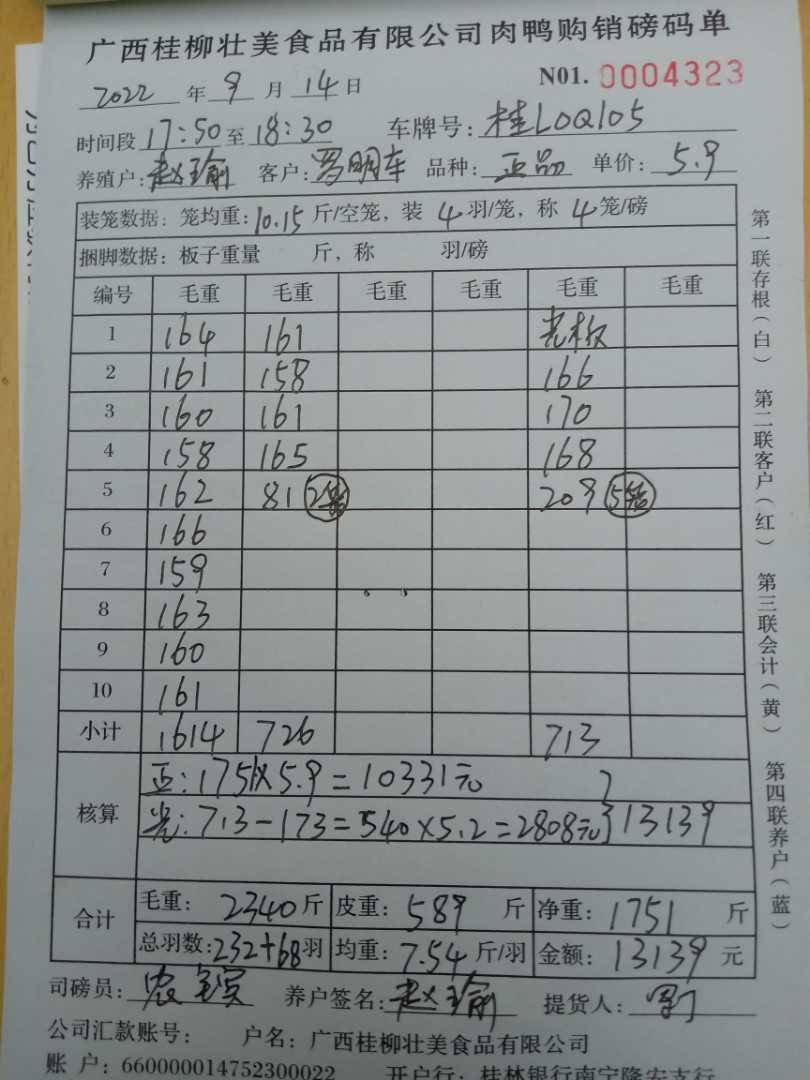 广西桂柳壮美食品有限公司肉鸭购销磅码单
2022 年 9 月 14 日 N01. 0004323
时间段 17:50 至 18:30 车牌号: 桂L0Q105
养殖户: 赵瑜 客户: 罗明车 品种: 正品 单价: 5.9
装笼数据: 笼均重: 10.15 斤/空笼, 装 4 羽/笼, 称 4 笼/磅
捆脚数据: 板子重量 斤, 称 羽/磅
编号 毛重 毛重 毛重 毛重 毛重 毛重
1 164 161 光板
2 161 158 166
3 160 161 170
4 158 165 168
5 162 81 2笼 209 5笼
6 166
7 159
8 163
9 160
10 161
小计 1614 726 713
核算 正: 1751×5.9=10331元
光: 713-173=540×5.2=2808元 } 13139
合计 毛重: 2340 斤 皮重: 589 斤 净重: 1751 斤
总羽数: 232+68 羽 均重: 7.54 斤/羽 金额: 13139 元
司磅员: 农 养户签名: 赵瑜 提货人:
公司汇款账号: 户名: 广西桂柳壮美食品有限公司
账户: 660000014752300022 开户行: 桂林银行南宁隆安支行
第一联存根(白) 第二联客户(红) 第三联会计(黄) 第四联养户(蓝)